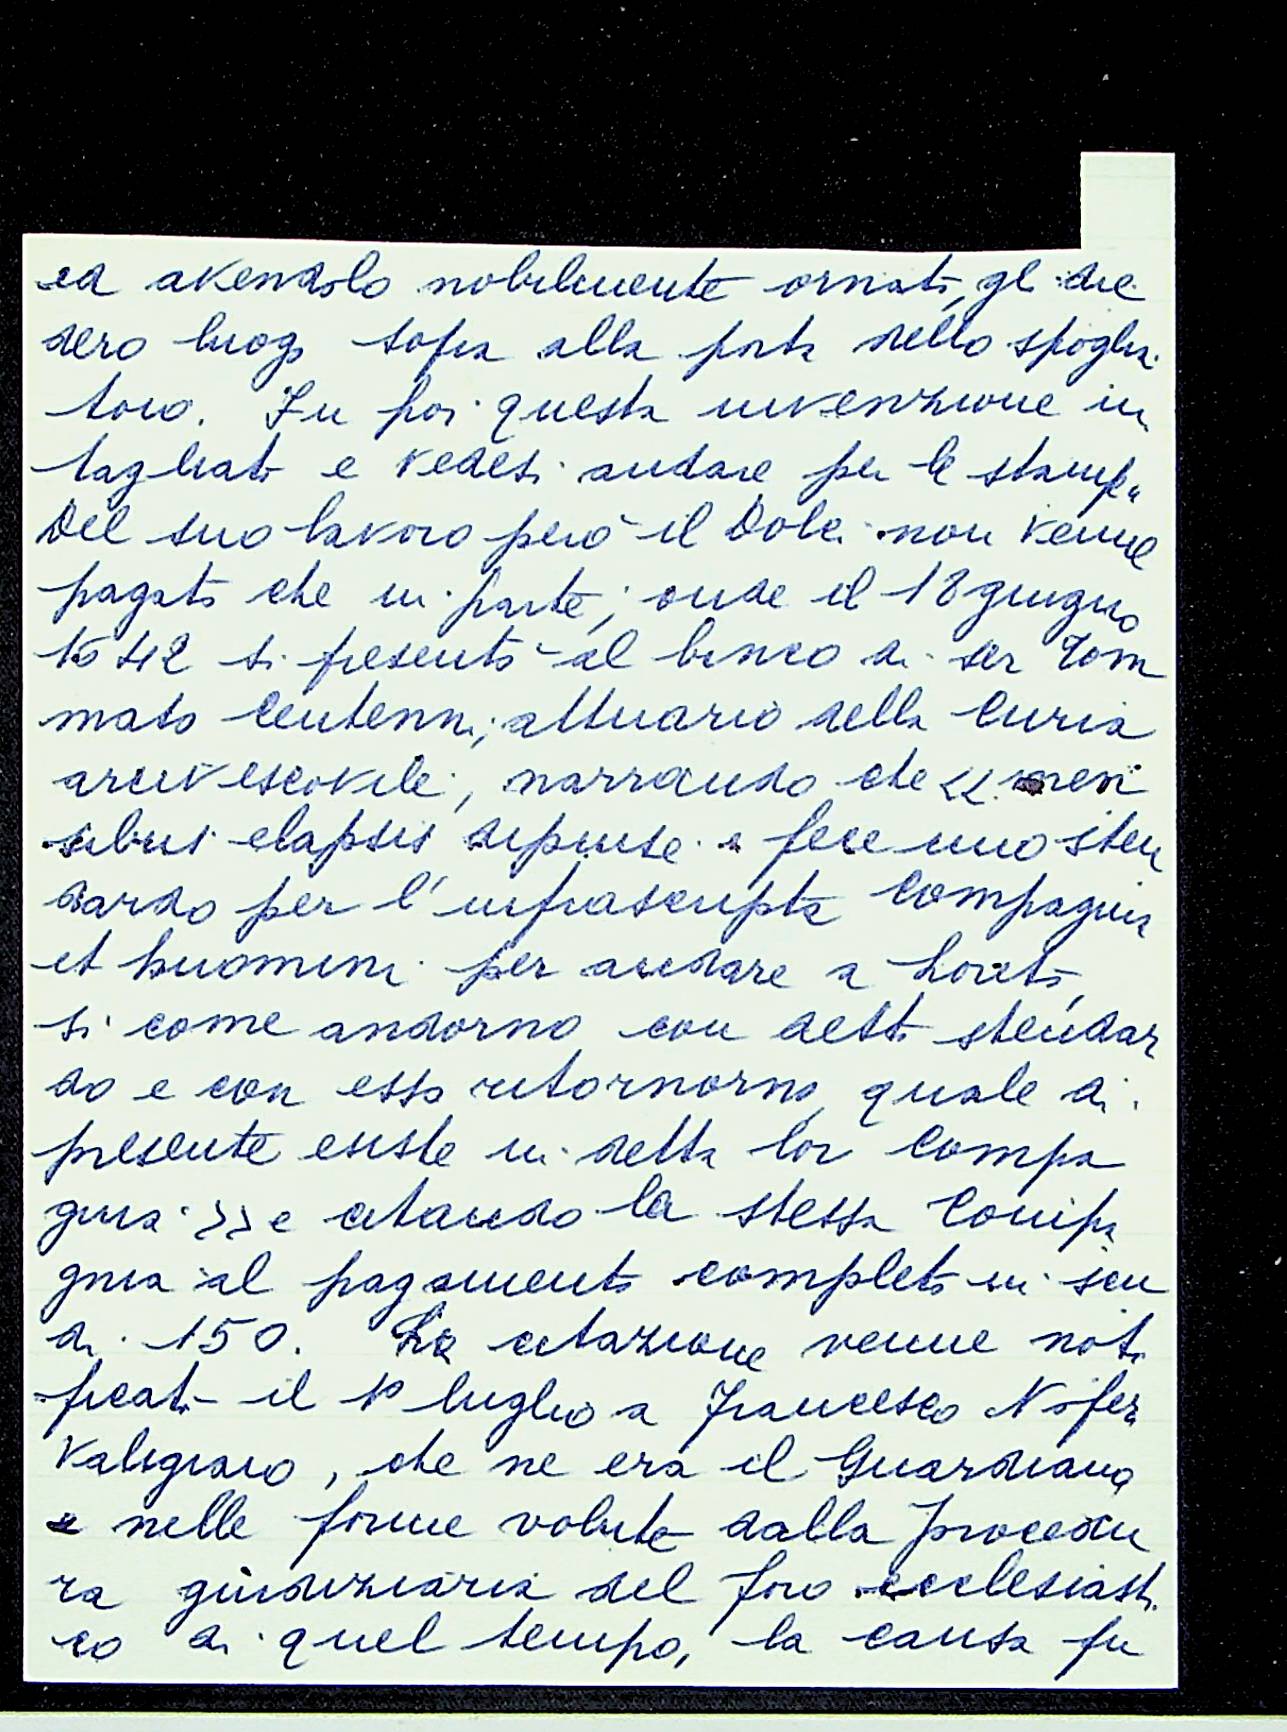 ed avendolo nobilmente ornato, gli die
dero luogo sopra alla porta dello spoglia
toio. Fu poi questa invenzione in
tagliata e vedesi andare per le stampe
Del suo lavoro però il Dolci non venne
pagato che in parte; onde il 18 giugno
1642 si presentò al banco di ser Tom
maso Centenni, attuario della Curia
arcivescovile, narrando che << men
sibus elapsis dipinse e fece uno sten
dardo per l'infrascripta Compagnia
et huomini per andare a Loreto,
si come andorno con detto stendar
do e con esso ritornorno, quale di
presente esiste in detta lor Compa
gnia >> e citando la stessa Compa
gnia al pagamento completo in scu
di 150. La citazione venne noti
ficata il 1º luglio a Francesco Noferi
Valigiaio, che ne era il Guardiano
e nelle forme volute dalla procedu
ra giudiziaria del foro ecclesiasti
co di quel tempo, la causa fu